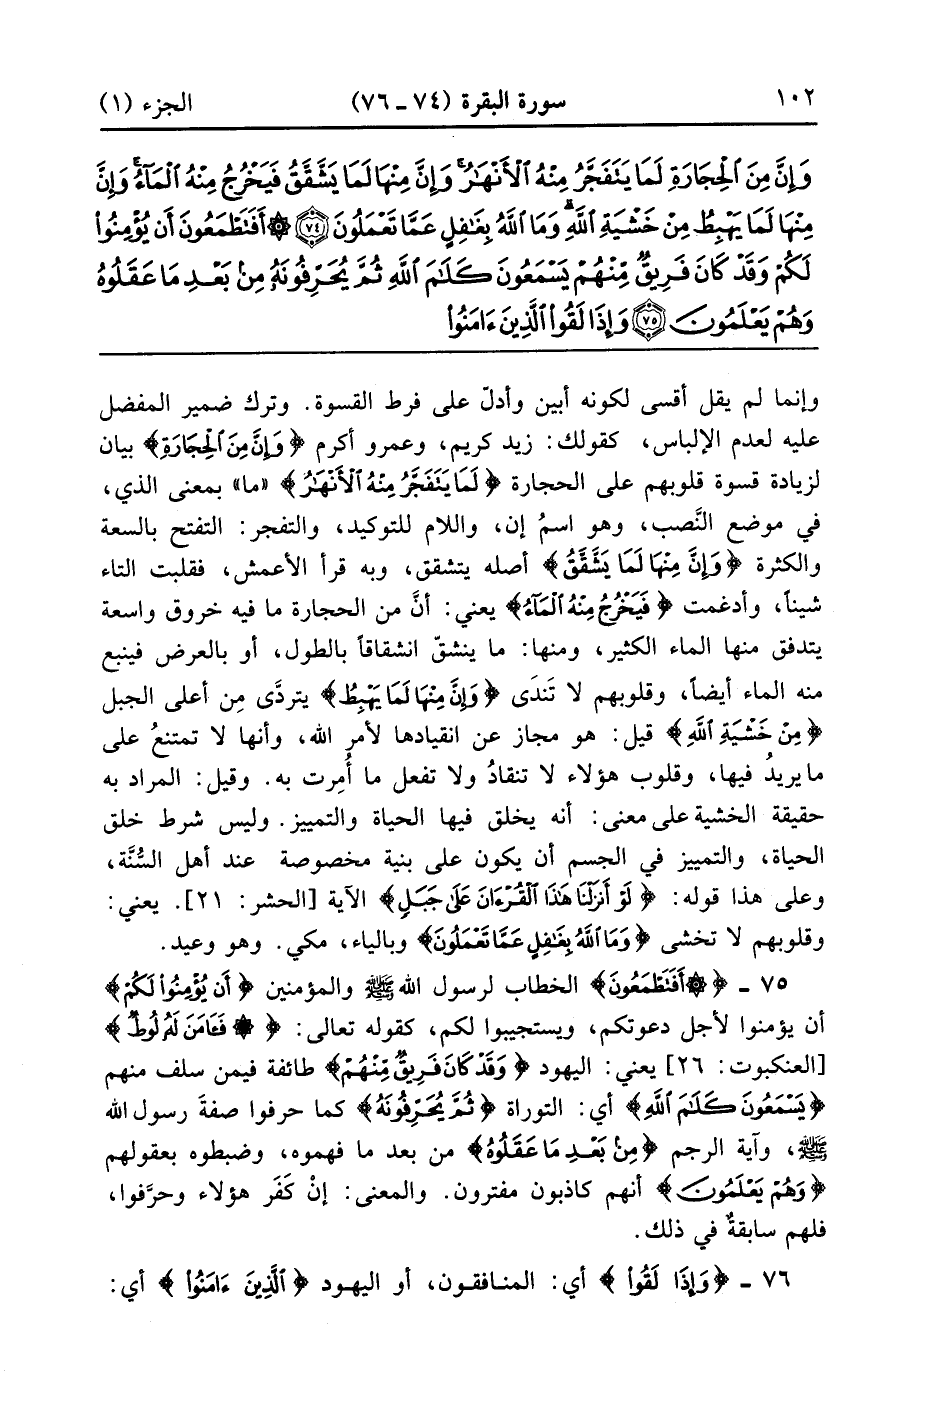 ١٠٢ سورة البقرة (٧٤ ـ ٧٦) الجزء (١)
وَإِنَّ مِنَ ٱلْحِجَارَةِ لَمَا يَتَفَجَّرُ مِنْهُ ٱلْأَنْهَٰرُ ۚ وَإِنَّ مِنْهَا لَمَا يَشَّقَّقُ فَيَخْرُجُ مِنْهُ ٱلْمَآءُ ۚ وَإِنَّ
مِنْهَا لَمَا يَهْبِطُ مِنْ خَشْيَةِ ٱللَّهِ ۗ وَمَا ٱللَّهُ بِغَٰفِلٍ عَمَّا تَعْمَلُونَ ﴿٧٤﴾ ۞ أَفَتَطْمَعُونَ أَن يُؤْمِنُوا۟
لَكُمْ وَقَدْ كَانَ فَرِيقٌ مِّنْهُمْ يَسْمَعُونَ كَلَٰمَ ٱللَّهِ ثُمَّ يُحَرِّفُونَهُۥ مِنۢ بَعْدِ مَا عَقَلُوهُ
وَهُمْ يَعْلَمُونَ ﴿٧٥﴾ وَإِذَا لَقُوا۟ ٱلَّذِينَ ءَامَنُوا۟
وإنما لم يقل أقسى لكونه أبين وأدلّ على فرط القسوة. وترك ضمير المفضل
عليه لعدم الإلباس، كقولك: زيد كريم، وعمرو أكرم ﴿وَإِنَّ مِنَ ٱلْحِجَارَةِ﴾ بيان
لزيادة قسوة قلوبهم على الحجارة ﴿لَمَا يَتَفَجَّرُ مِنْهُ ٱلْأَنْهَٰرُ﴾ «ما» بمعنى الذي،
في موضع النَّصب، وهو اسمُ إن، واللام للتوكيد، والتفجر: التفتح بالسعة
والكثرة ﴿وَإِنَّ مِنْهَا لَمَا يَشَّقَّقُ﴾ أصله يتشقق، وبه قرأ الأعمش، فقلبت التاء
شيناً، وأدغمت ﴿فَيَخْرُجُ مِنْهُ ٱلْمَآءُ﴾ يعني: أنَّ من الحجارة ما فيه خروق واسعة
يتدفق منها الماء الكثير، ومنها: ما ينشقّ انشقاقاً بالطول، أو بالعرض فينبع
منه الماء أيضاً، وقلوبهم لا تَندَى ﴿وَإِنَّ مِنْهَا لَمَا يَهْبِطُ﴾ يتردَّى مِن أعلى الجبل
﴿مِنْ خَشْيَةِ ٱللَّهِ﴾ قيل: هو مجاز عن انقيادها لأمر الله، وأنها لا تمتنعُ على
ما يريدُ فيها، وقلوب هؤلاء لا تنقادُ ولا تفعل ما أُمِرت به. وقيل: المراد به
حقيقة الخشية على معنى: أنه يخلق فيها الحياة والتمييز. وليس شرط خلق
الحياة، والتمييز في الجسم أن يكون على بنية مخصوصة عند أهل السُّنَّة،
وعلى هذا قوله: ﴿لَوْ أَنزَلْنَا هَٰذَا ٱلْقُرْءَانَ عَلَىٰ جَبَلٍ﴾ الآية [الحشر: ٢١]. يعني:
وقلوبهم لا تخشى ﴿وَمَا ٱللَّهُ بِغَٰفِلٍ عَمَّا تَعْمَلُونَ﴾ وبالياء، مكي. وهو وعيد.
٧٥ ـ ﴿۞ أَفَتَطْمَعُونَ﴾ الخطاب لرسول الله ﷺ والمؤمنين ﴿أَن يُؤْمِنُوا۟ لَكُمْ﴾
أن يؤمنوا لأجل دعوتكم، ويستجيبوا لكم، كقوله تعالى: ﴿۞ فَـَٔامَنَ لَهُۥ لُوطٌ﴾
[العنكبوت: ٢٦] يعني: اليهود ﴿وَقَدْ كَانَ فَرِيقٌ مِّنْهُمْ﴾ طائفة فيمن سلف منهم
﴿يَسْمَعُونَ كَلَٰمَ ٱللَّهِ﴾ أي: التوراة ﴿ثُمَّ يُحَرِّفُونَهُۥ﴾ كما حرفوا صفةَ رسول الله
ﷺ، وآية الرجم ﴿مِنۢ بَعْدِ مَا عَقَلُوهُ﴾ من بعد ما فهموه، وضبطوه بعقولهم
﴿وَهُمْ يَعْلَمُونَ﴾ أنهم كاذبون مفترون. والمعنى: إنْ كَفَر هؤلاء وحرَّفوا،
فلهم سابقةٌ في ذلك.
٧٦ ـ ﴿وَإِذَا لَقُوا۟﴾ أي: المنافقون، أو اليهود ﴿ٱلَّذِينَ ءَامَنُوا۟﴾ أي: